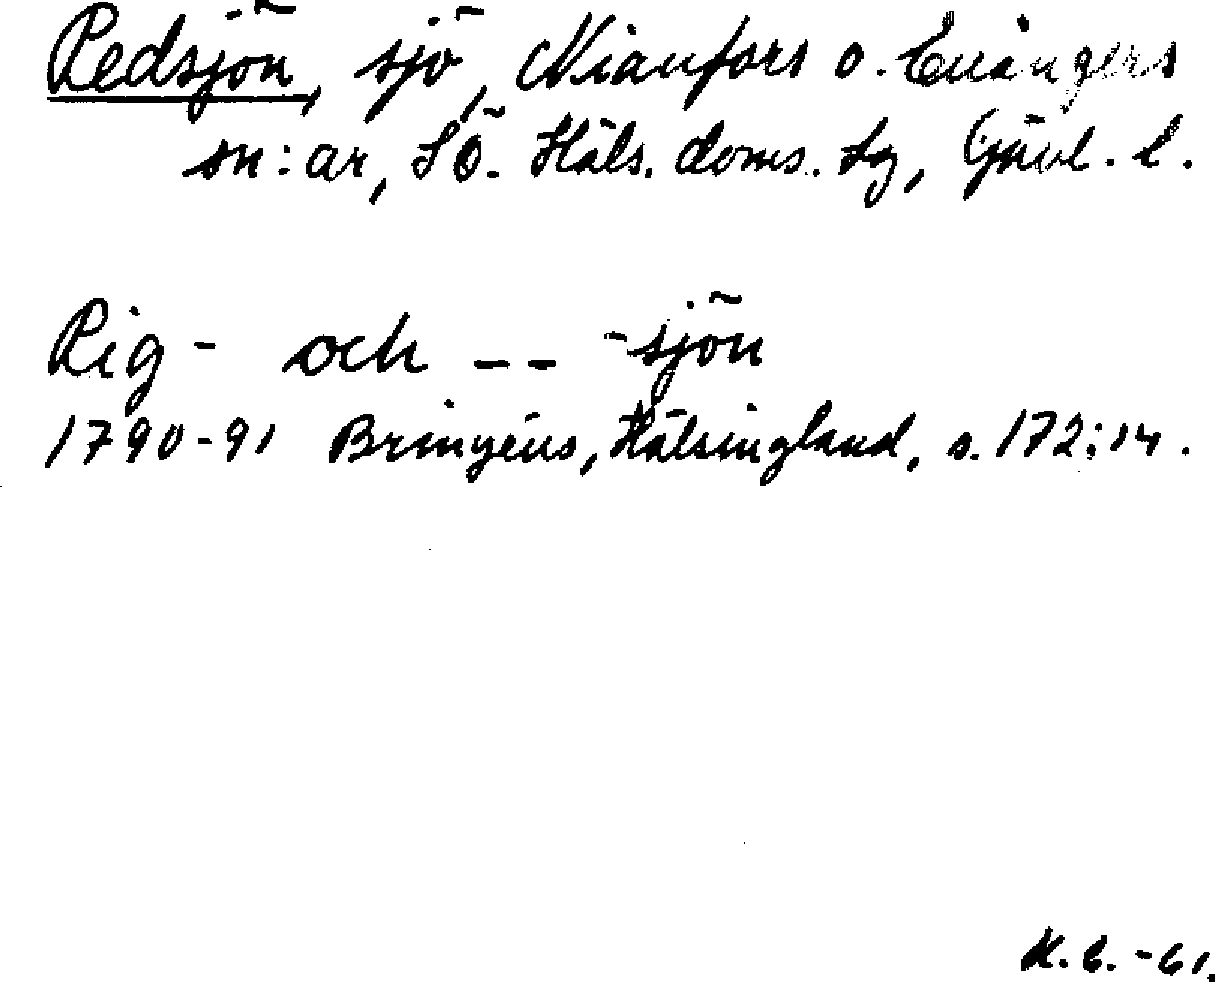 Redsjön, sjö, Nianfors o. Enångers
sn:ar, SÖ. Häls. doms. tg, Gävl. l.
Rig- och -- -sjön
1790-91 Bringéus, Hälsingland, s. 172:14.
K.C. -61.